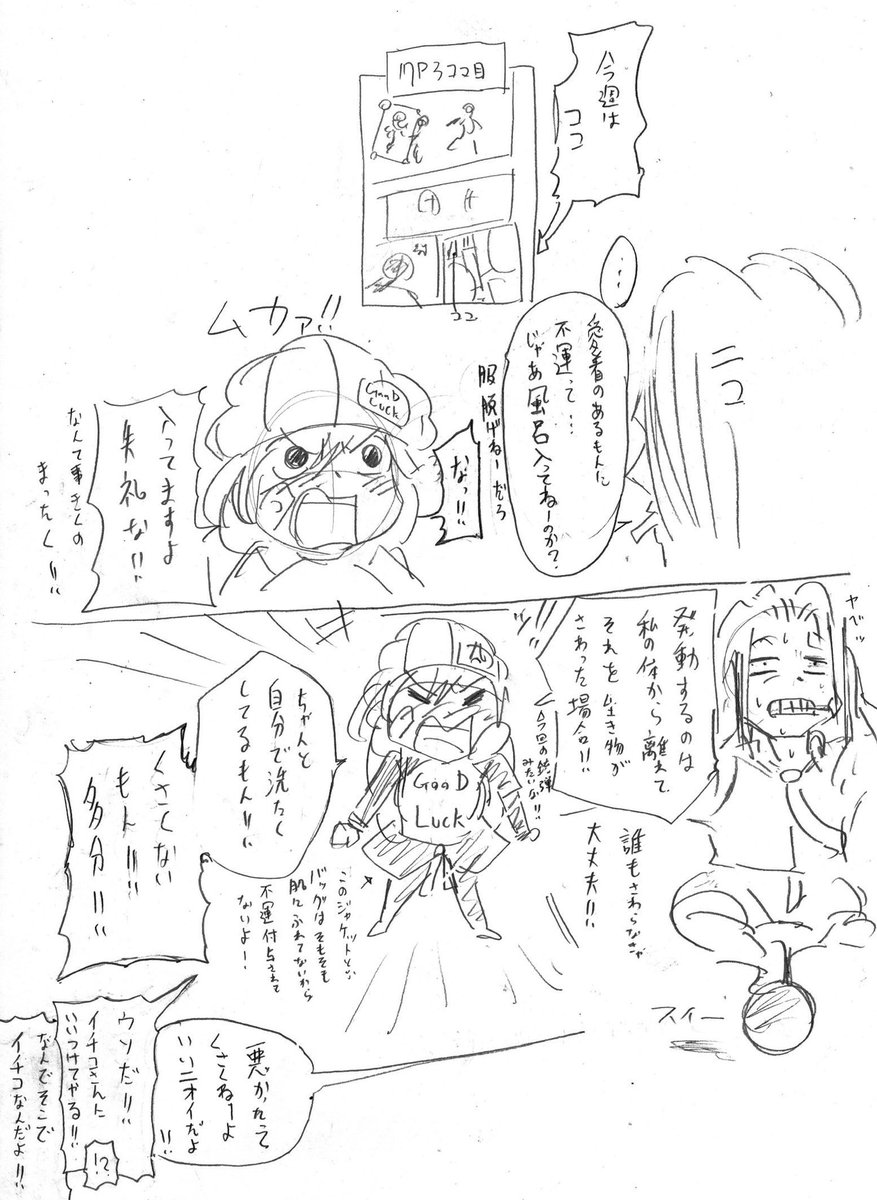 今週は
ココ
MP3ココ目
ココ
…
愛着のあるもんに
不運って…
じゃあ風呂入ってねーのか?
服脱げねーだろ
ムカァ!!
GooD
Luck
なっ!!
入ってますよ
失礼な!!
なんて事きくの
まったく!!
ヤベッ
発動するのは
私の体から離れて
それを生き物が
さわった場合!!
今回の銃弾
みたいな!!
誰もさわらなきゃ
大丈夫!!
GooD
Luck
ちゃんと
自分で洗たく
してるもん!!
このジャケットとい
バッグはそもそも
肌にふれてないから
不運付与されて
ないよ!
くさくない
もん!!
多分!!
スイー
悪かったって
くさくねーよ
いいニオイだよ
!!
ウソだ!!
イチコさんに
いいつけてやる!!
!?
なんでそこで
イチコなんだよ!!